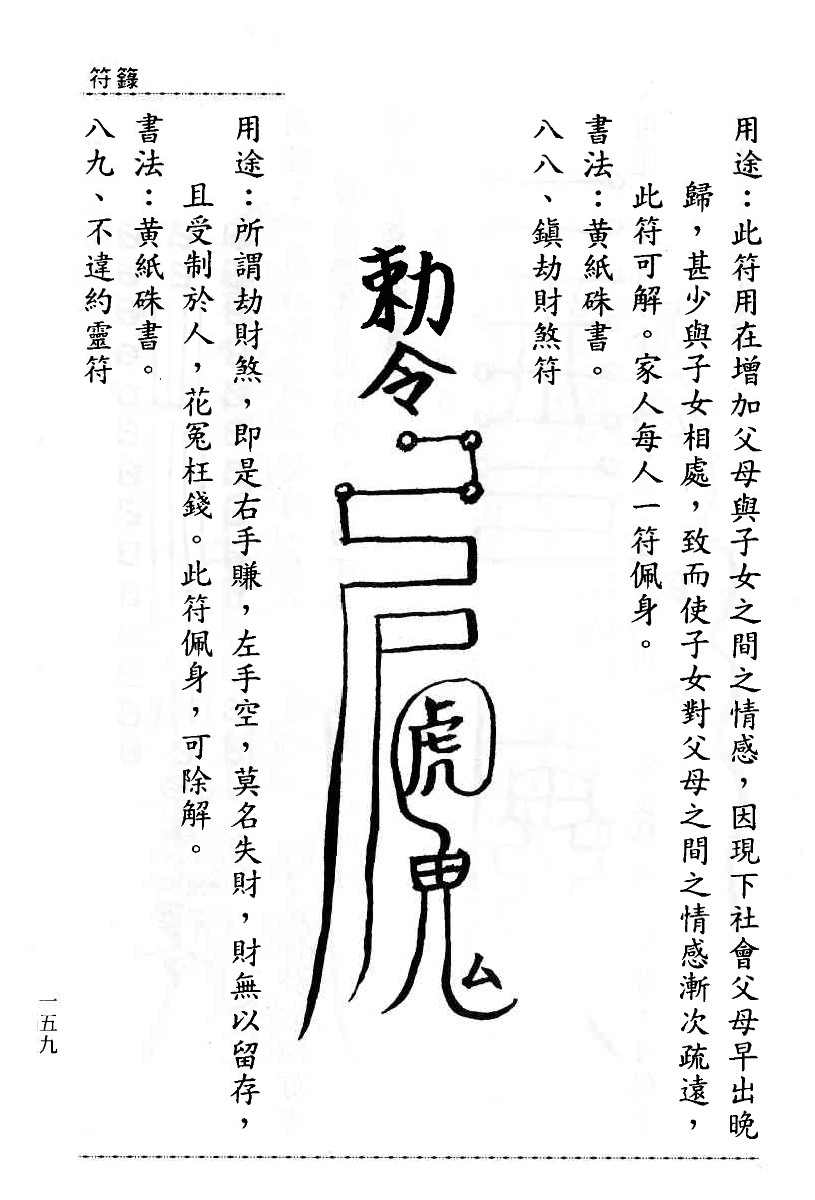 符籙
用途：此符用在增加父母與子女之間之情感，因現下社會父母早出晚
歸，甚少與子女相處，致而使子女對父母之間之情感漸次疏遠，
此符可解。家人每人一符佩身。
書法：黃紙硃書。
八八、鎮劫財煞符
勅令
虎
鬼
用途：所謂劫財煞，即是右手賺，左手空，莫名失財，財無以留存，
且受制於人，花冤枉錢。此符佩身，可除解。
書法：黃紙硃書。
八九、不違約靈符
一五九